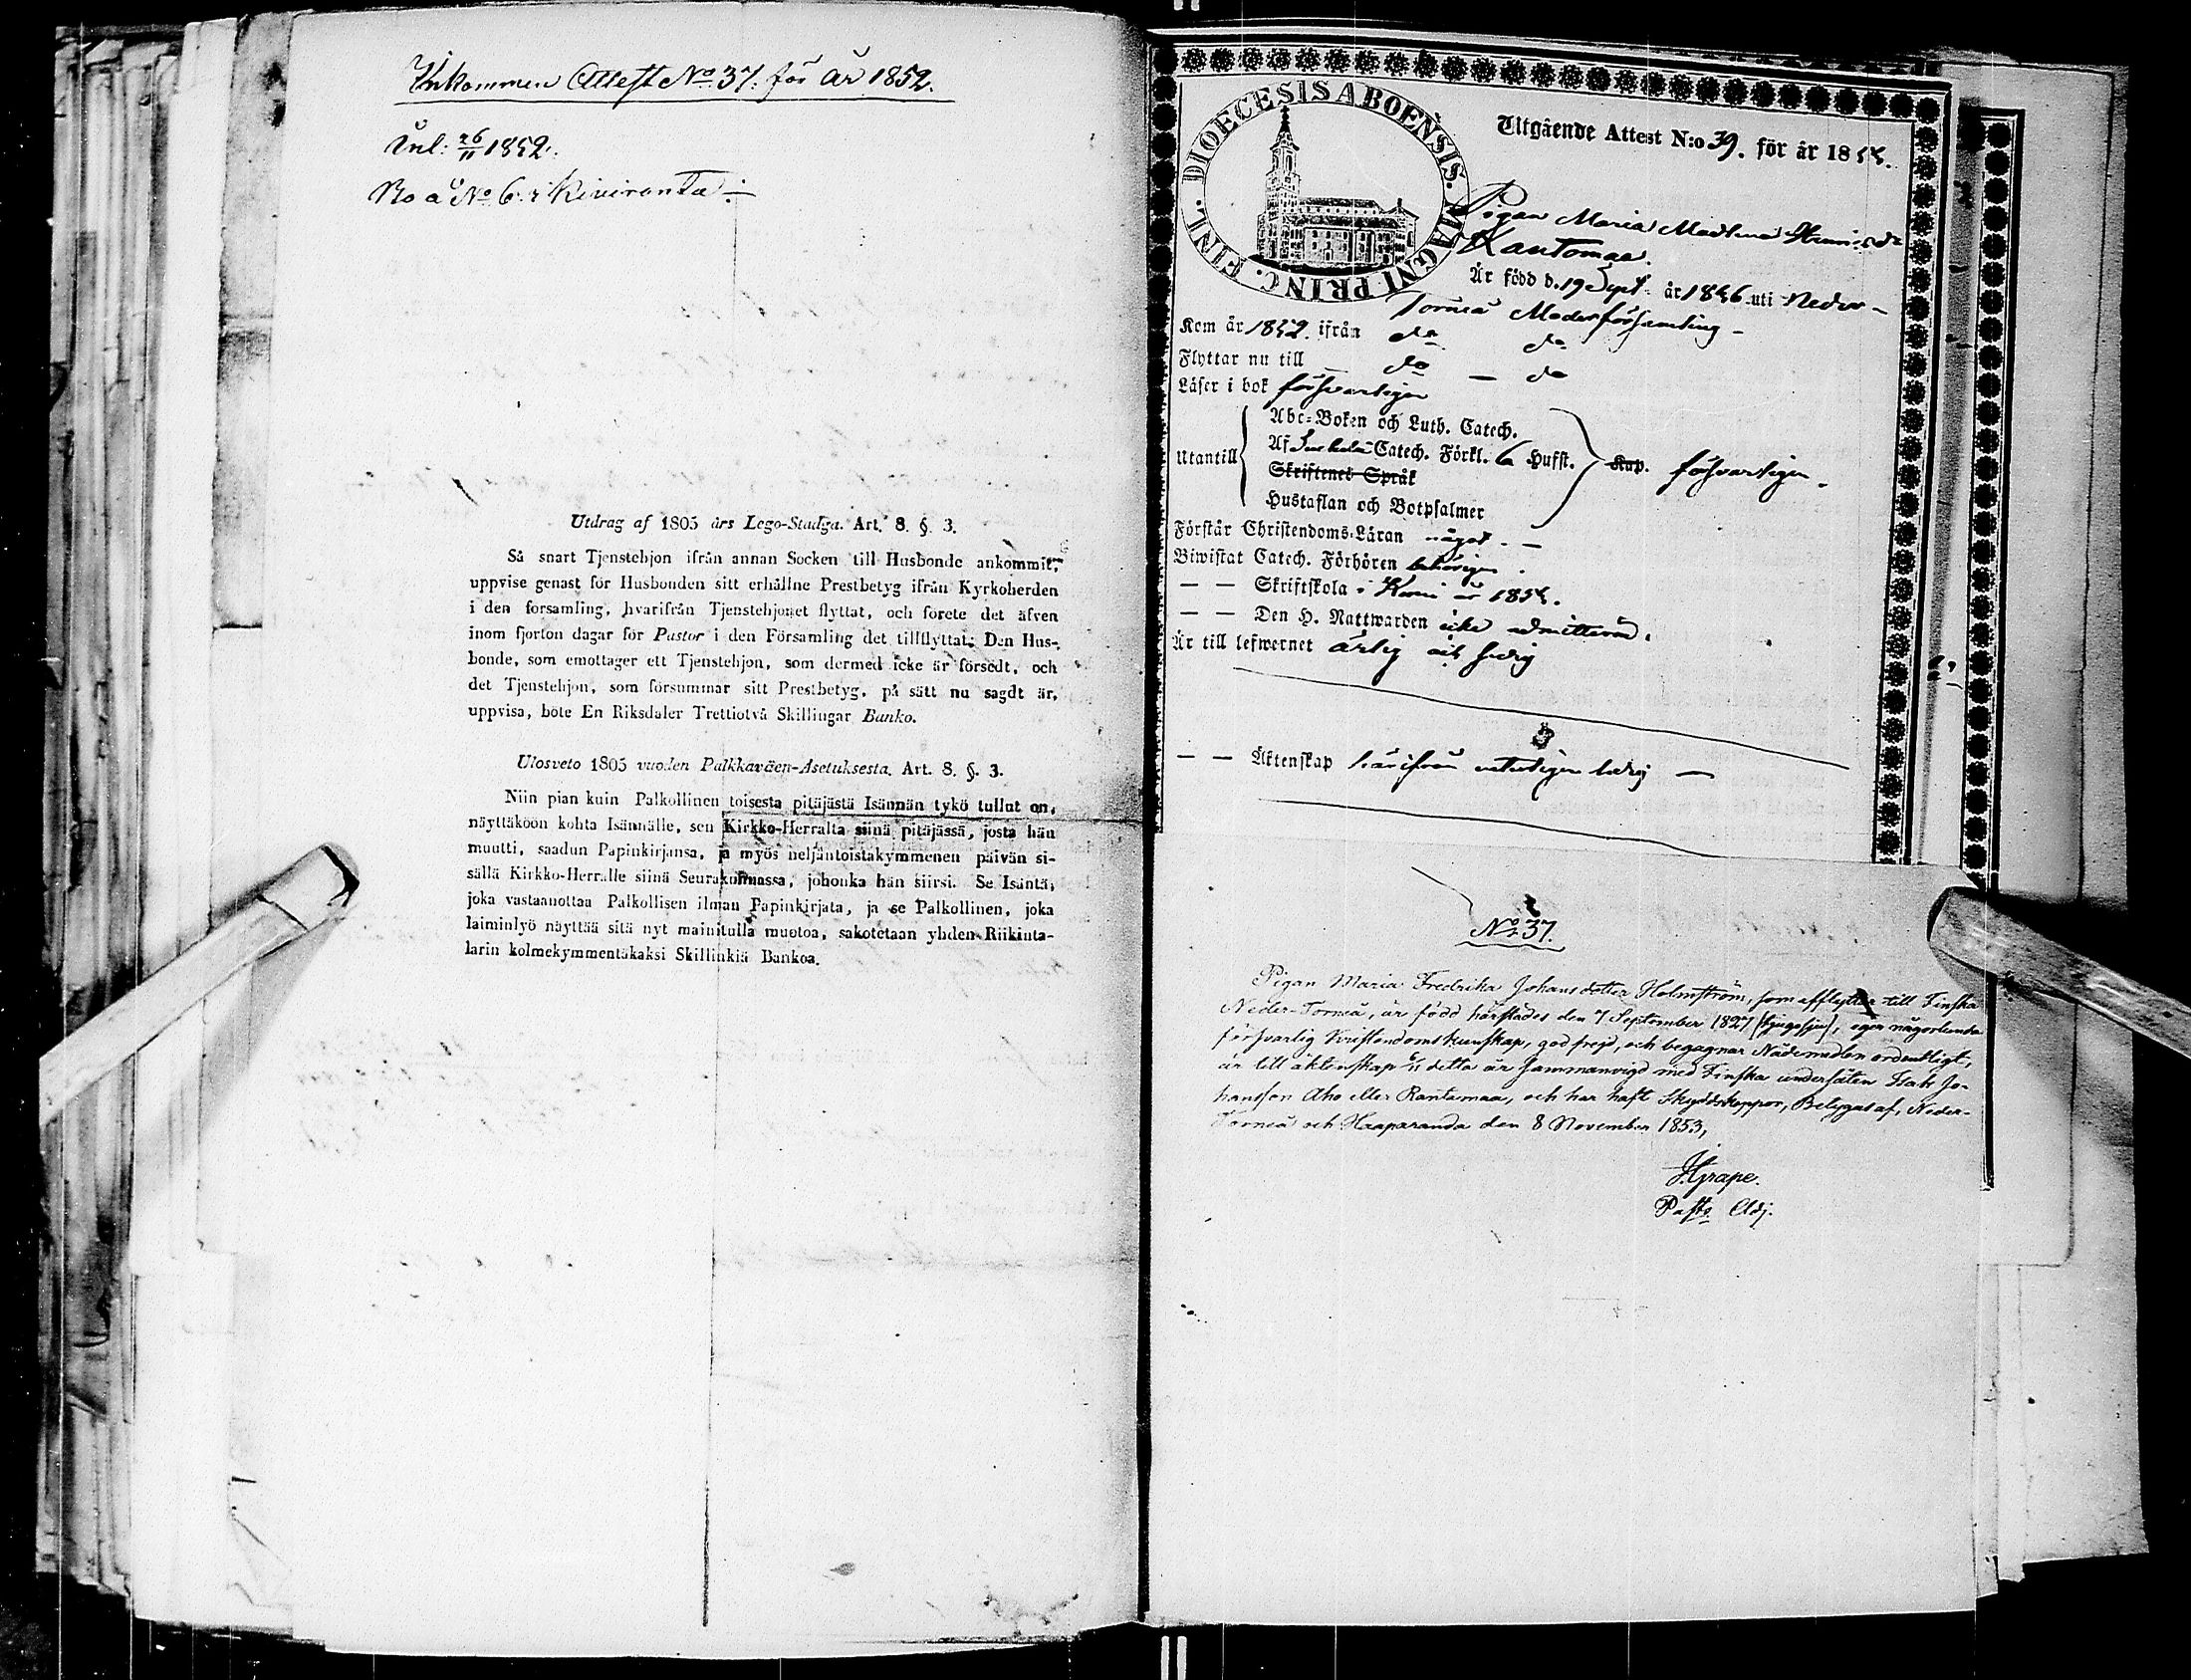 Inkommen Attest No 37. för år 1852.
Inl: 26/11 1852.
Bo å No 6 i Kiviranta
Utdrag af 1805 års Lego-Stadga. Art. 8. §. 3.
Så snart Tjenstehjon ifrån annan Socken till Husbonde ankommit,
uppvise genast för Husbonden sitt erhållne Prestbetyg ifrån Kyrkoherden
i den församling, hvarifrån Tjenstehjonet flyttat, och förete det äfven
inom fjorton dagar för Pastor i den Församling det tillflyttat; Den Hus-
bonde, som emottager ett Tjenstehjon, som dermed icke är försedt, och
det Tjenstehjon, som försummar sitt Prestbetyg, på sätt nu sagdt är,
uppvisa, böte En Riksdaler Trettiotvå Skillingar Banko.
Ulosveto 1805 vuoden Palkkaväen-Asetuksesta. Art. 8. §. 3.
Niin pian kuin Palkollinen toisesta pitäjästä Isännän tykö tullut on,
näyttäköön kohta Isännälle, sen Kirkko-Herralta siinä pitäjässä, josta hän
muutti, saadun Papinkirjansa, ja myös neljäntoistakymmenen päivän si-
sällä Kirkko-Herralle siinä Seurakunnassa, johonka hän siirsi. Se Isäntä,
joka vastaanottaa Palkollisen ilman Papinkirjata, ja se Palkollinen, joka
laiminlyö näyttää sitä nyt mainitulla muotoa, sakotetaan yhden Riikinta-
larin kolmekymmentäkaksi Skillinkiä Bankoa.
DIOECESIS ABOENSIS. MAGNI PRINC. FINL.
Utgående Attest N:o 39. för år 1855.
Pigan Maria Madlena
Är född d. 19 Sept. år 1836 uti Neder-
Torneå Moderförsamling
Kom år 1852. ifrån do do
Flyttar nu till do — do
Läser i bok försvarligen
Utantill
Abc-Boken och Luth. Catech.
Af Catech. Förkl. 6 Hufst.
Skriftenes Språk
Hustaflan och Botpsalmer
Kap. försvarligen
Förstår Christendoms-Läran något
Biwistat Catech. Förhören behörigen
— — Skriftskola i Kemi år 1855.
— — Den H. Nattwarden icke admitterad.
Är till lefwernet ärlig och sedig
— — Äktenskap härifrån veterligen ledig —
No 37.
Pigan Maria Fredrika Johansdotter Holmström, som afflyttar till Finska
Neder-Torneå, är född härstädes den 7 September 1827 (tjugosju), eger någorlunda
försvarlig Kristendomskunskap, god frejd, och begagnar Nådemedlen ordentligt,
är till äktenskap detta år sammanvigd med Finska undersåten Isak Jo-
hansson Aho eller Rantamaa, och har haft Skyddskoppor, Betygas af, Neder-
Torneå och Haaparanda den 8 November 1853,
J. Grape.
Past. Adj.